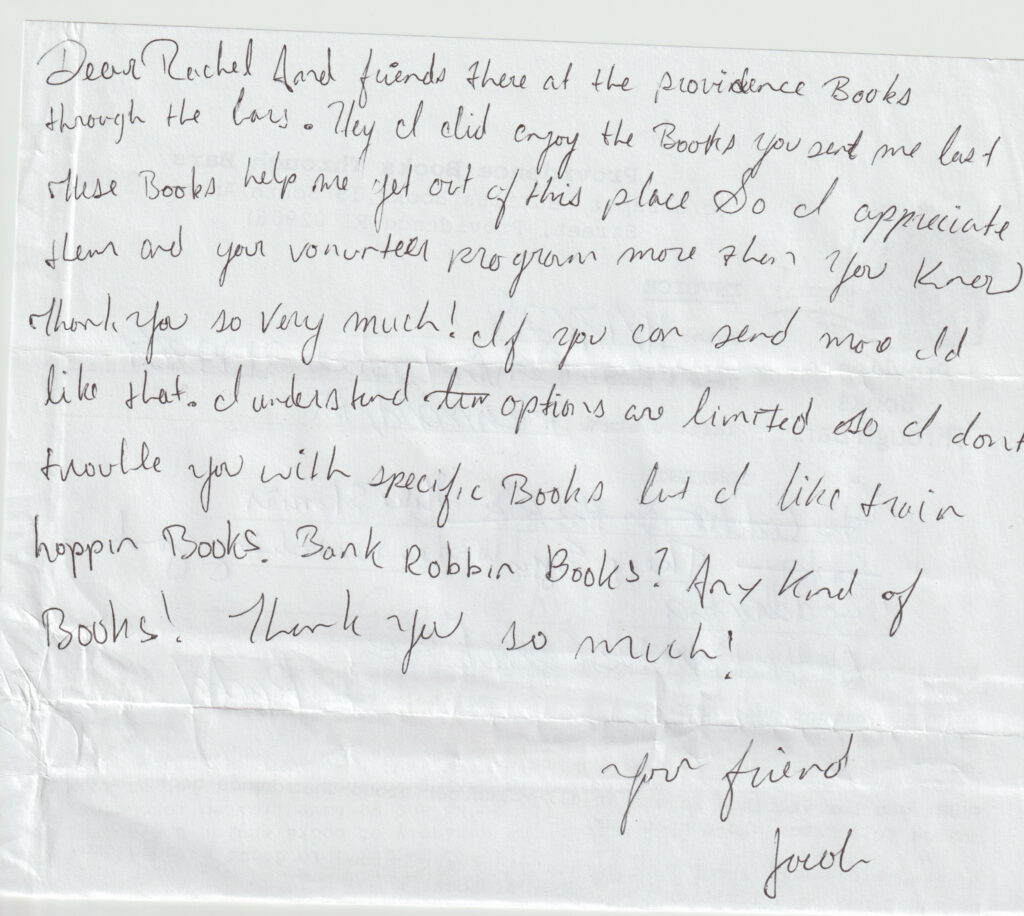 Dear Rachel And friends there at the providence Books
through the bars. Hey I did enjoy the Books you sent me last
these Books help me get out of this place So I appreciate
them and your vonunteer program more then you Know
Thank you so very much! If you can send moo Id
like that. I understand options are limited so I dont
trouble you with specific Books but I like train
hoppin Books. Bank Robbin Books? Any Kind of
Books! Thank you so much!
your friend
Jacob